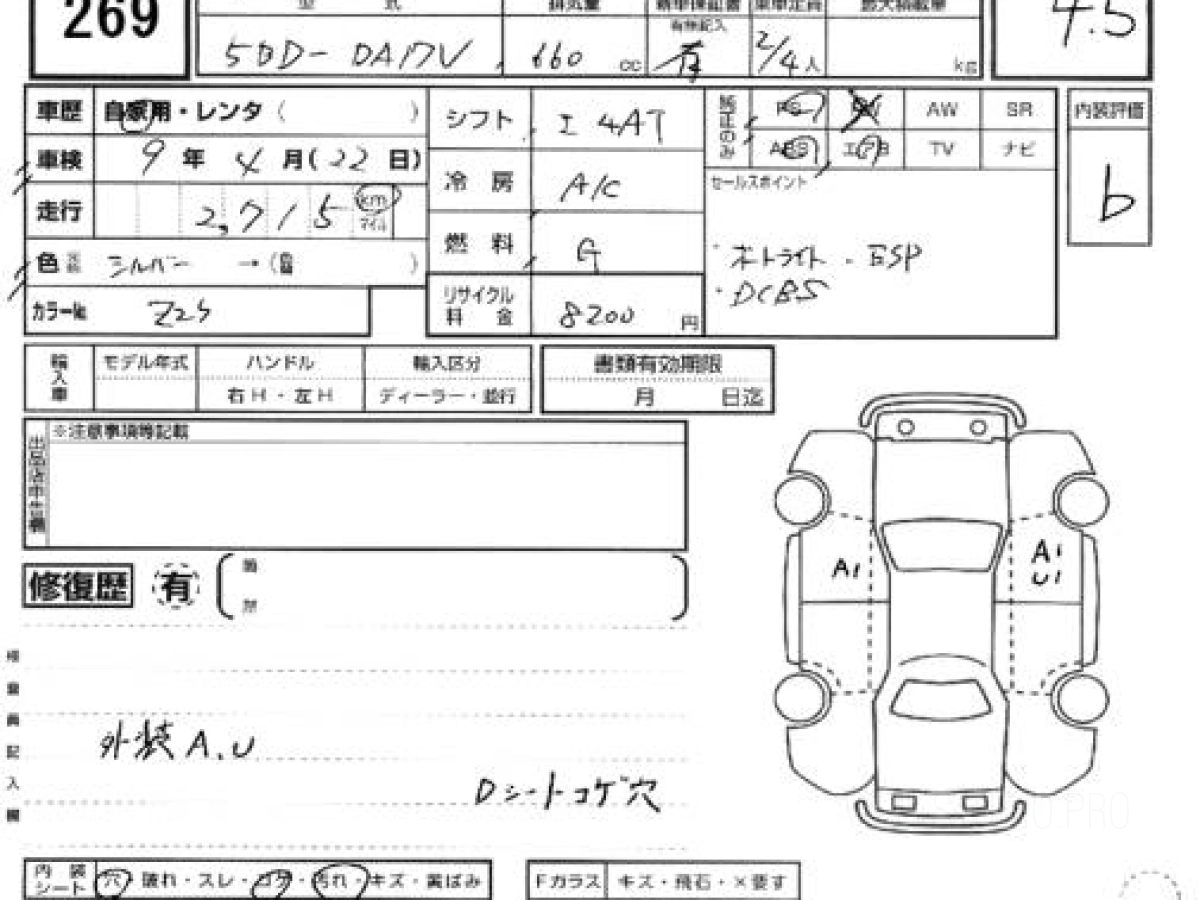 269
型 式
排気量
新車保証書
乗車定員
最大積載量
有無記入
5BD-DA17V
660 cc
有
2/4人
kg
4.5
車歴 自家用・レンタ( )
シフト I 4AT
純正のみ
PS PW AW SR
ABS エアB TV ナビ
内装評価
b
車検 9年 4月(22日)
冷房 A/C
セールスポイント
走行 2,715 km マイル
燃料 G
・オートライト・ESP
・DCBS
色 シルバー →( )
カラー№ Z2S
リサイクル料金 8200円
輸入車
モデル年式 ハンドル 輸入区分
右H・左H ディーラー・並行
書類有効期限
月 日迄
※注意事項等記載
出品店申告欄
A1
A1
U1
修復歴 有
検査員記入欄
外装A、U
Dシートコゲ穴
内装シート 穴・破れ・スレ・コゲ・汚れ・キズ・黄ばみ
Fガラス キズ・飛石・×要す